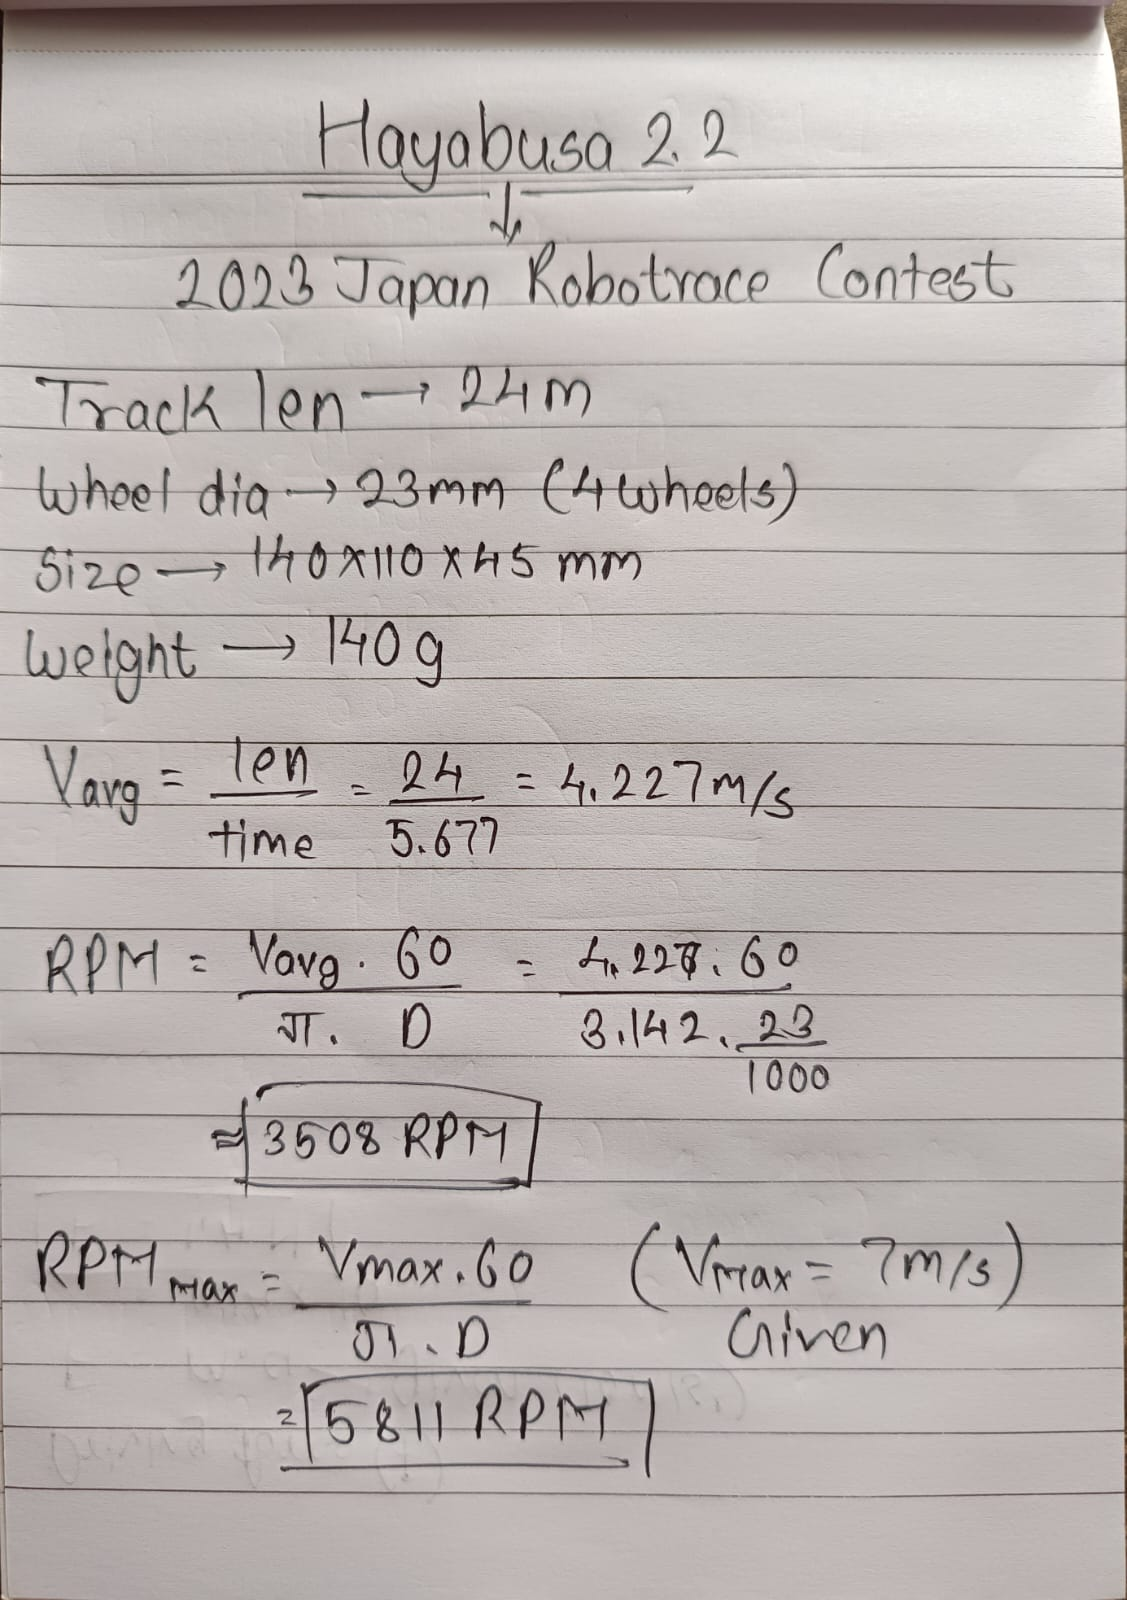 Hayabusa 2.2
↓
2023 Japan Robotrace Contest
Track len → 24m
Wheel dia → 23mm (4 wheels)
Size → 140x110x45 mm
Weight → 140g
Varg = len / time = 24 / 5.677 = 4.227m/s
RPM = Varg . 60 / π . D = 4.227 . 60 / 3.142 . 23 / 1000
≈ 3508 RPM
RPM max = Vmax . 60 / π . D (Vmax = 7m/s)
Given
= 5811 RPM